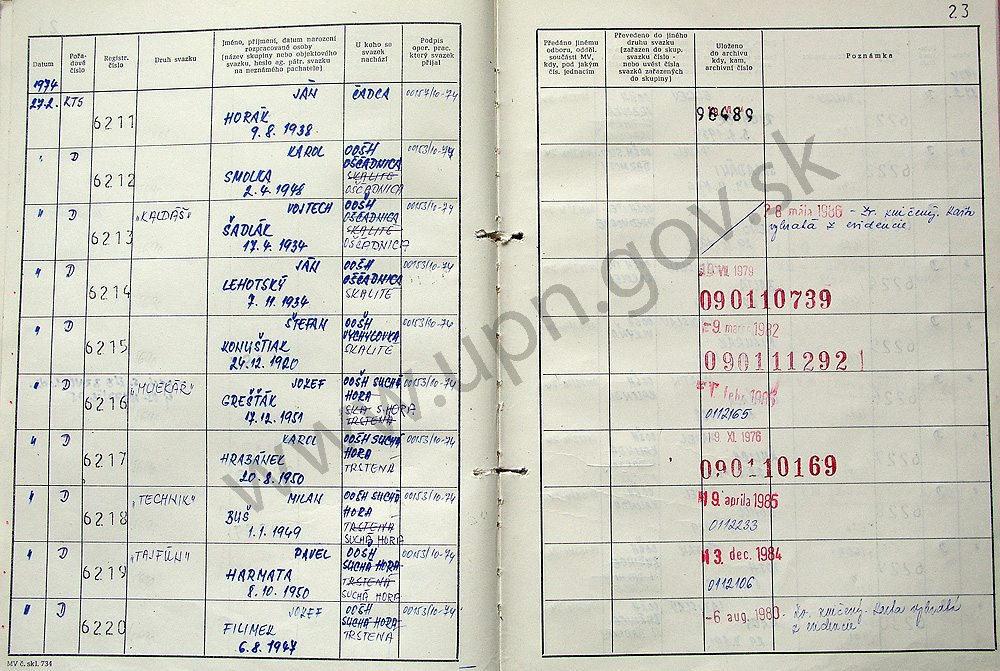 23
Datum
Pořa-
dové
číslo
Registr.
číslo
Druh svazku
Jméno, příjmení, datum narození
rozpracované osoby
(název skupiny nebo objektového
svazku, heslo ag. pátr. svazku
na neznámého pachatele)
U koho se
svazek
nachází
Podpis
oper. prac.
který svazek
přijal
Předáno jinému
odboru, odděl.
součásti MV,
kdy, pod jakým
čís. jednacím
Převedeno do jiného
druhu svazku
(zařazen do skup.
svazku číslo -
nebo uvést čísla
svazků zařazených
do skupiny)
Uloženo
do archivu
kdy, kam,
archivní číslo
Poznámka
1974
27.2. KTS
6211
JÁN
HORÁK
9. 8. 1938
ČADCA
00157/10-74
96489
" D
6212
KAROL
SMOLKA
2. 4. 1948
OOŠH
OŠČADNICA
SKALITÉ
OŠČADNICA
00153/10-74
" D
6213
"KALDÁŠ"
VOJTECH
ŠADLÁK
17. 4. 1934
OOŠH
OŠČADNICA
SKALITÉ
OŠČADNICA
00153/10-74
8 mája 1986 - Zr. zničený. Karta
vybratá z evidencie
" D
6214
JÁN
LEHOTSKÝ
7. 11. 1934
OOŠH
OŠČADNICA
SKALITÉ
00153/10-74
VII 1979
090110739
" D
6215
ŠTEFAN
KONUŠTIAK
24. 12. 1920
OOŠH
VYCHYLOVKA
SKALITÉ
00153/10-74
-9. marca 1982
090111292
" D
6216
"MLIEKÁR"
JOZEF
GREŠŤÁK
17. 12. 1951
OOŠH SUCHÁ
HORA
TRSTENÁ
00153/10-74
0112165
" D
6217
KAROL
HRABÁNEL
20. 8. 1950
OOŠH SUCHÁ
HORA
TRSTENÁ
00153/10-74
19. XI. 1976
090110169
" D
6218
"TECHNIK"
MILAN
BUŠ
1. 1. 1949
OOŠH SUCHÁ
HORA
TRSTENÁ
SUCHÁ HORA
00153/10-74
19. apríla 1985
0112233
" D
6219
"TAJFÚN"
PAVEL
HARMATA
8. 10. 1950
OOŠH
SUCHÁ HORA
TRSTENÁ
SUCHÁ HORA
00153/10-74
13. dec. 1984
0112106
" D
6220
JOZEF
FILIMEK
6. 8. 1947
OOŠH
SUCHÁ HORA
TRSTENÁ
00153/10-74
-6 aug. 1980
Zr. zničený. Karta vybratá
z evidencie
MV č. skl. 734
www.upn.gov.sk